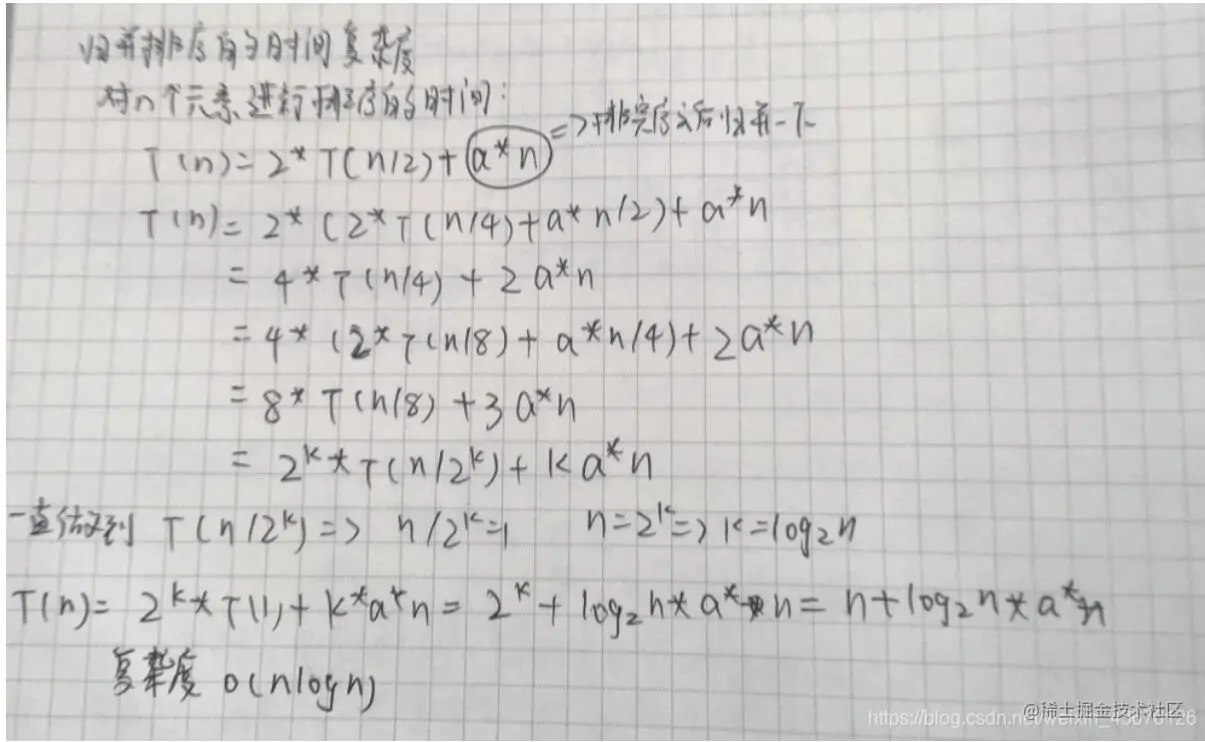 归并排序的时间复杂度
对n个元素进行排序的时间:
T(n)=2*T(n/2)+a*n =>排完序之后归并一下
T(n)=2*(2*T(n/4)+a*n/2)+a*n
=4*T(n/4)+2a*n
=4*(2*T(n/8)+a*n/4)+2a*n
=8*T(n/8)+3a*n
=2^k*T(n/2^k)+ka*n
一直做到 T(n/2^k)=> n/2^k=1 n=2^k=>k=log₂n
T(n)=2^k*T(1)+k*a*n=2^k+log₂n*a*n=n+log₂n*a*n
复杂度 O(nlogn)
@稀土掘金技术社区